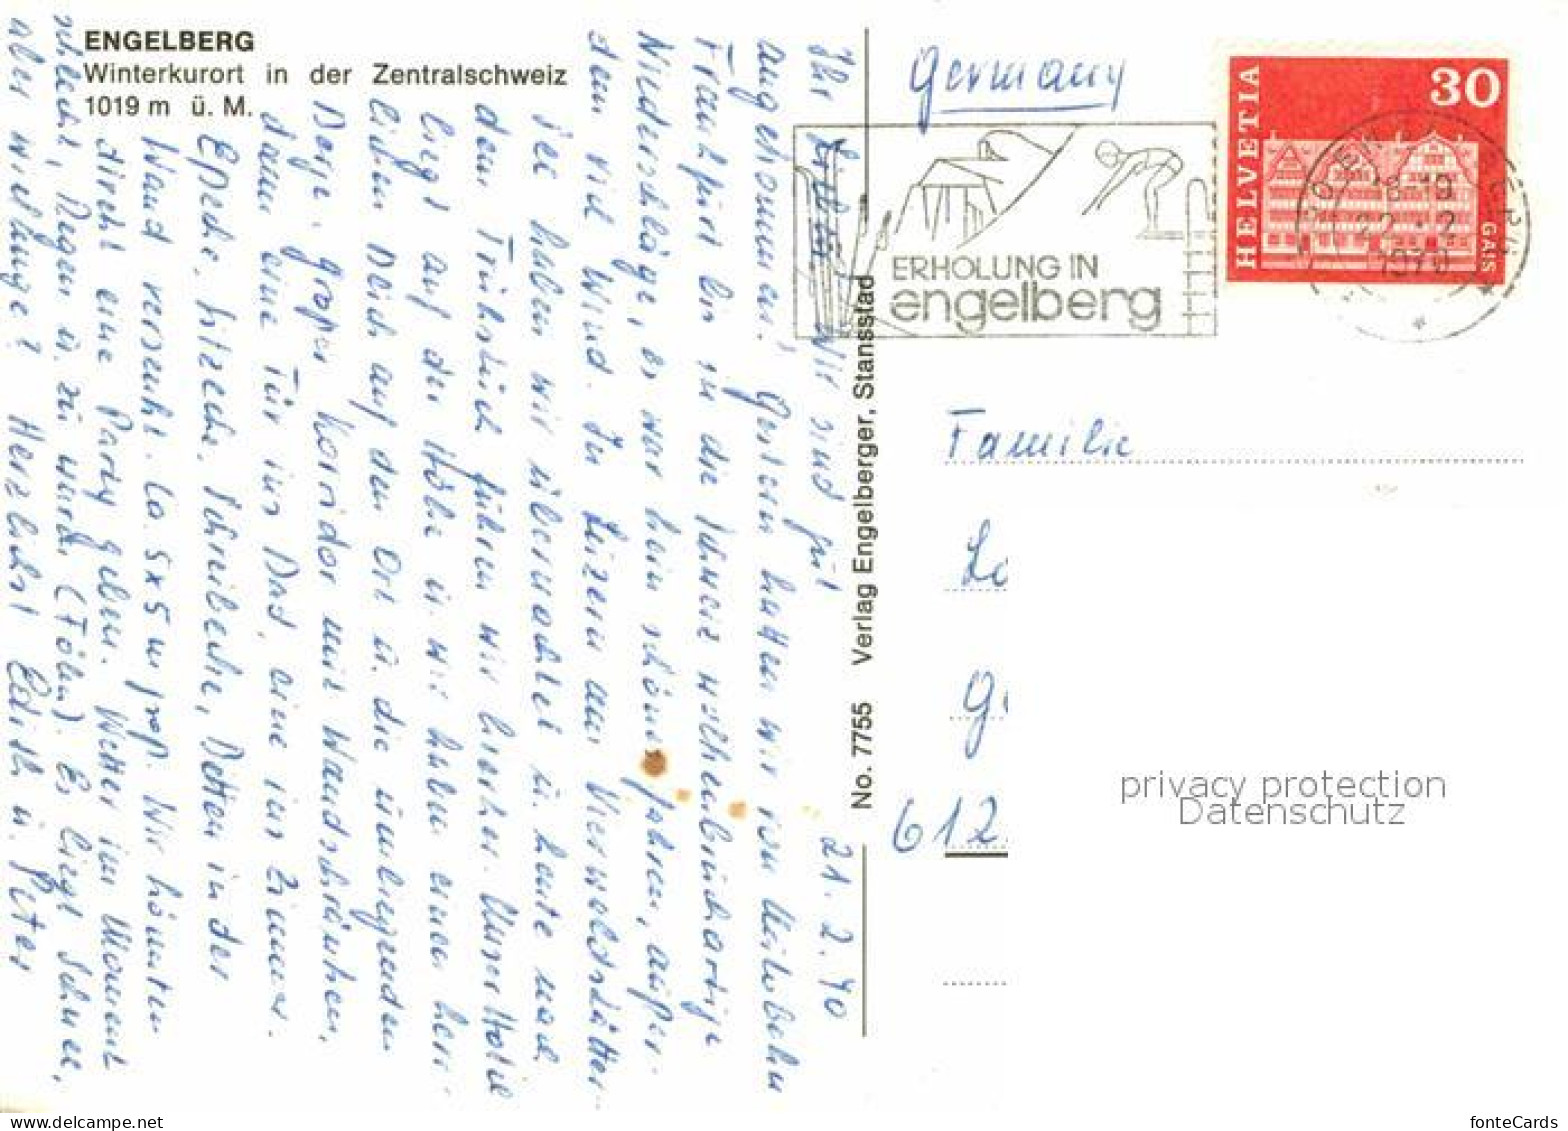 ENGELBERG
Winterkurort in der Zentralschweiz
1019 m ü. M.
21. 2. 70
Ihr Lieben! Wir sind gut
angekommen! Gestern hatten wir von
Frankfurt bis in die Schweiz wolkenbruchartige
Niederschläge, es war kein schönes Fahren, außer-
dem viel Wind. In Luzern am Vierwaldstätter-
See haben wir übernachtet u. heute nach
dem Frühstück fuhren wir hierher. Unser Hotel
liegt auf der Höhe u. wir haben einen herr-
lichen Blick auf den Ort u. die umliegenden
Berge. Großer Korridor mit Wandschränken,
dann eine Tür ins Bad, eine ins Zimmer.
Essecke, Sitzecke, Schreibecke, Betten in der
Wand versenkt. Ca. 5x5 m groß. Wir könnten
direkt eine Party geben. Wetter im Moment
schlecht, Regen u. zu warm (Föhn). Es liegt Schnee,
aber wie lange? Herzlichst Edith u. Peter
No. 7755 Verlag Engelberger, Stansstad
Germany
ERHOLUNG IN
engelberg
HELVETIA
30
GAIS
18-19
22. 2.
1970
Familie
612
privacy protection
Datenschutz
fonteCards